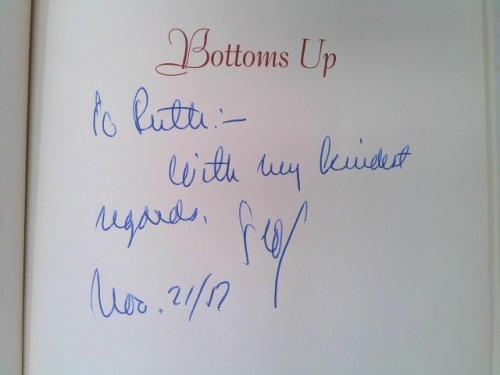 Bottoms Up
To Ruth:—
With my kindest
regards.
Nov. 21/57